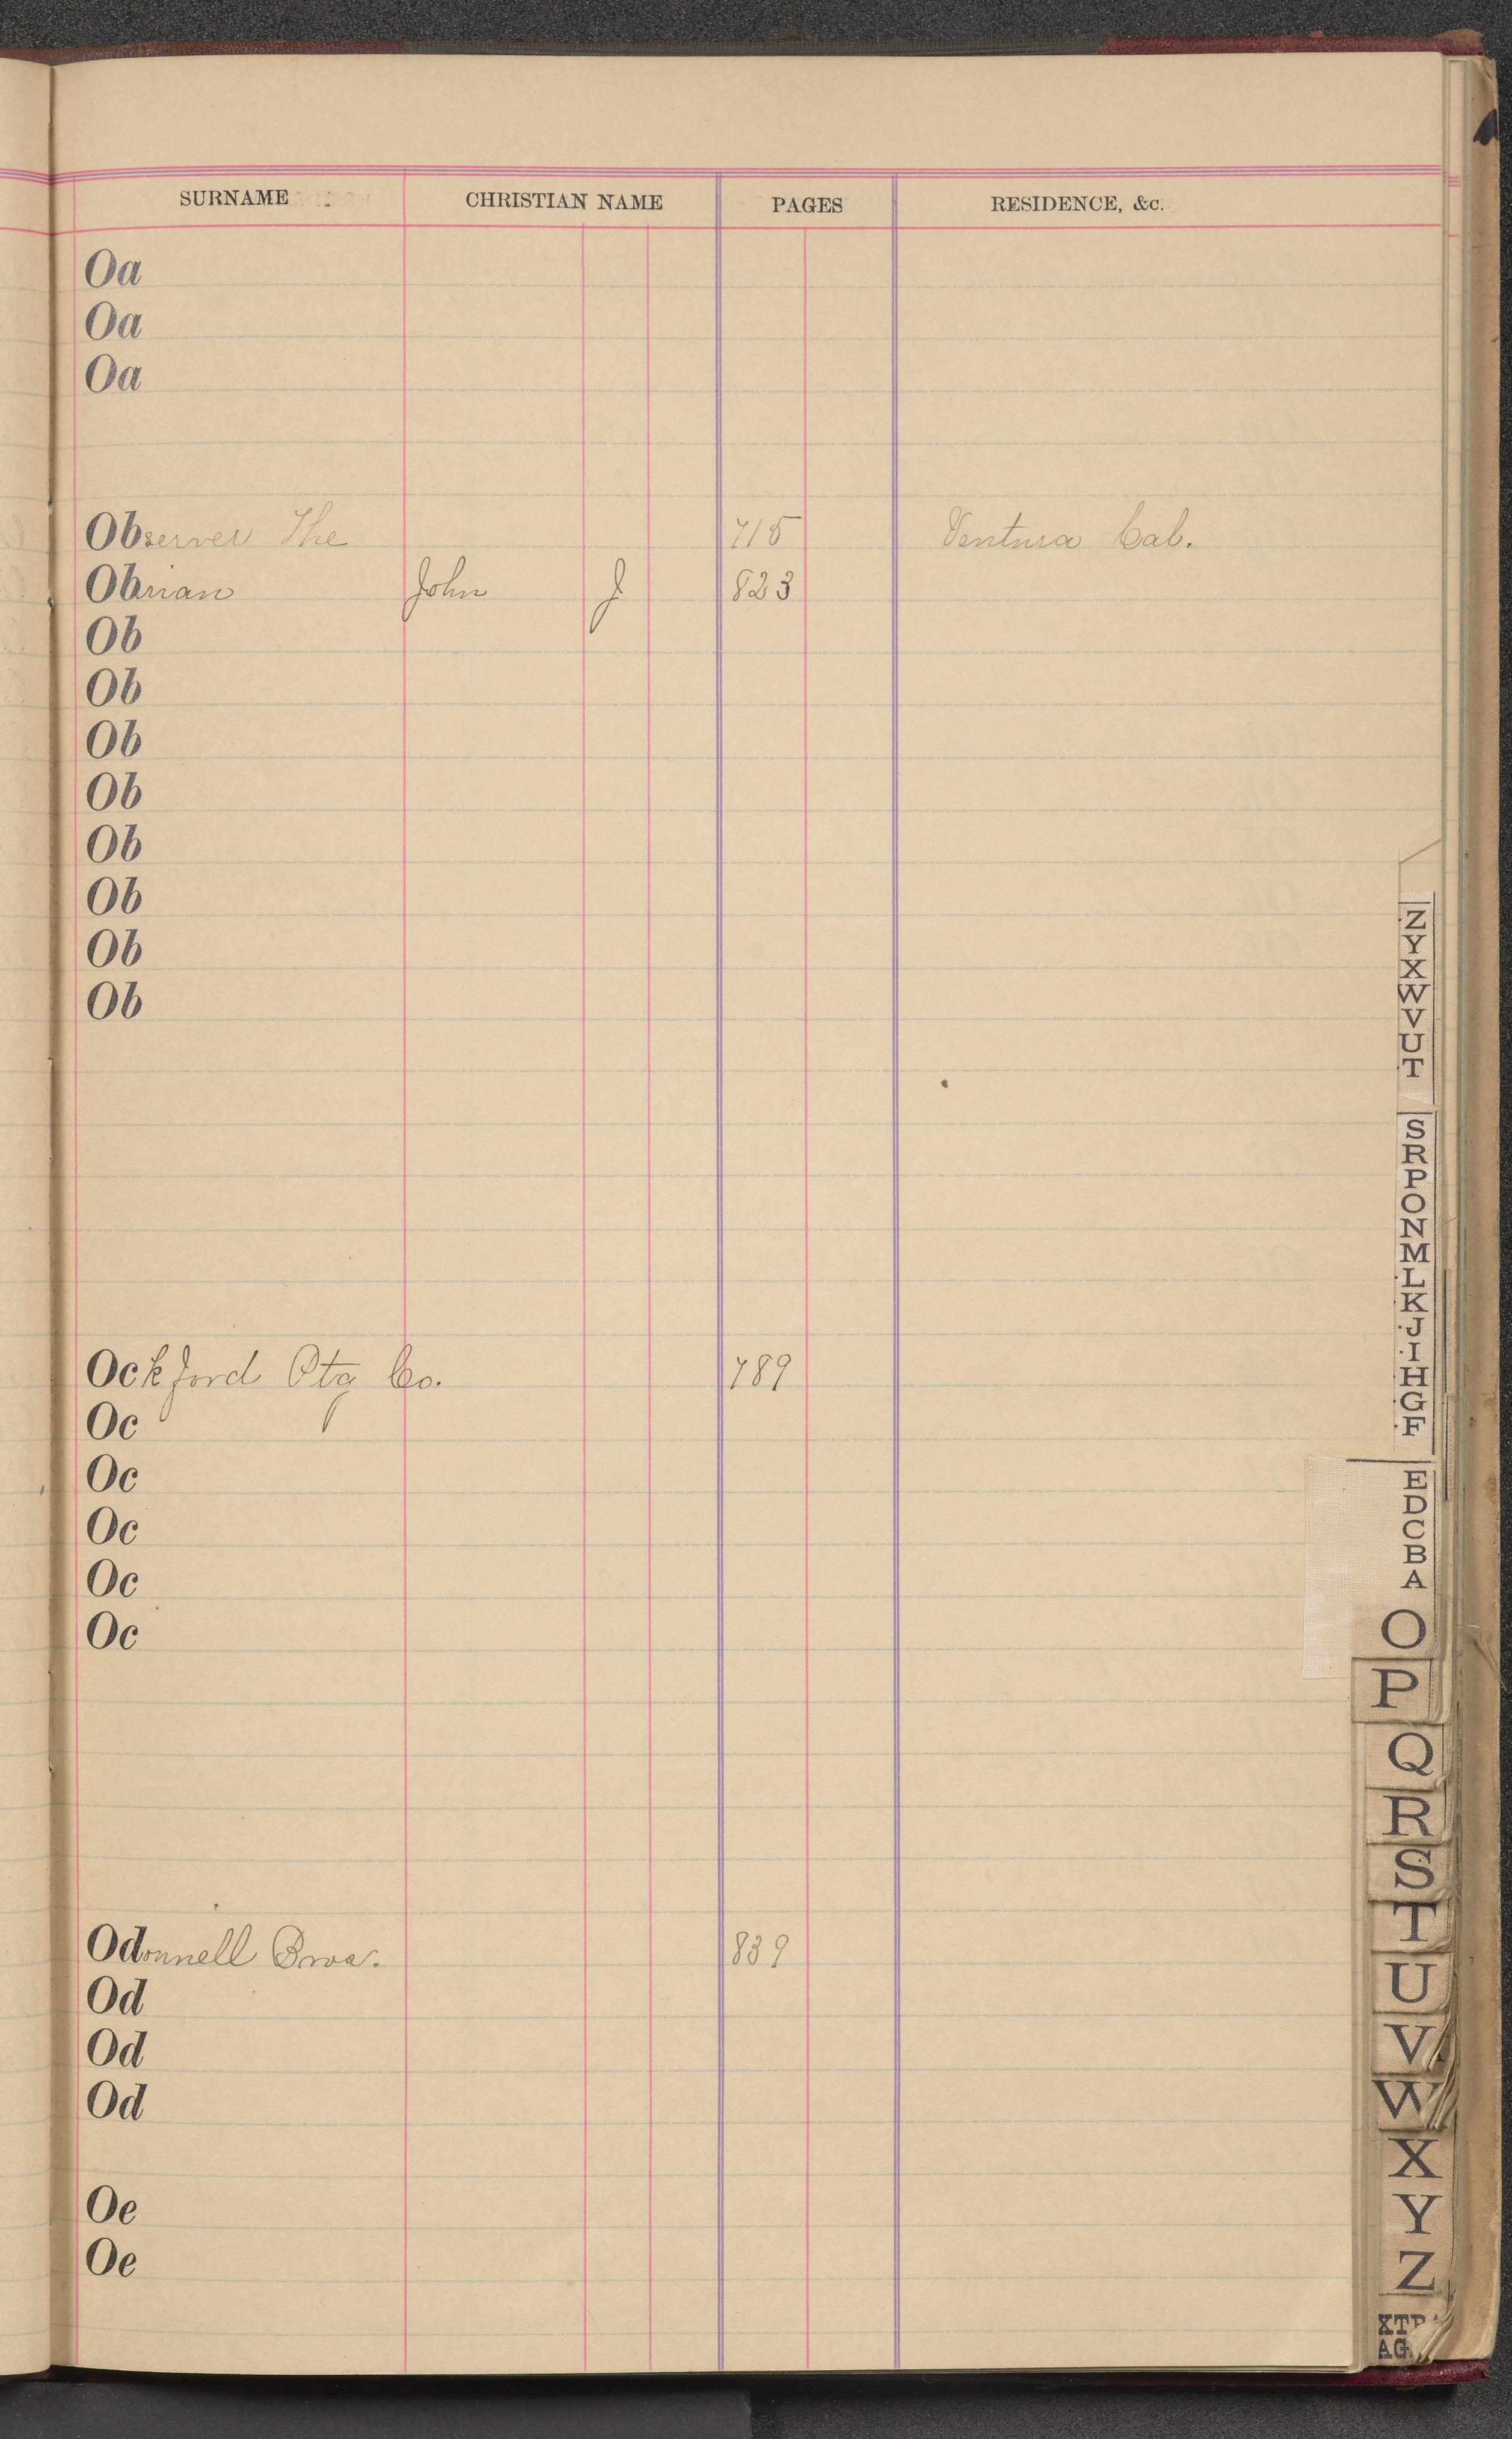 SURNAME CHRISTIAN NAME PAGES RESIDENCE, &c.
Oa
Oa
Oa
Observer The 715 Ventura Cal.
Obrian John J 823
Ob
Ob
Ob
Ob
Ob
Ob
Ob
Ob
Ockford Ptg Co. 789
Oc
Oc
Oc
Oc
Oc
Odonnell Bros. 839
Od
Od
Od
Oe
Oe
Z
Y
X
W
V
U
T
S
R
P
O
N
M
L
K
J
I
H
G
F
E
D
C
B
A
O
P
Q
R
S
T
U
V
W
X
Y
Z